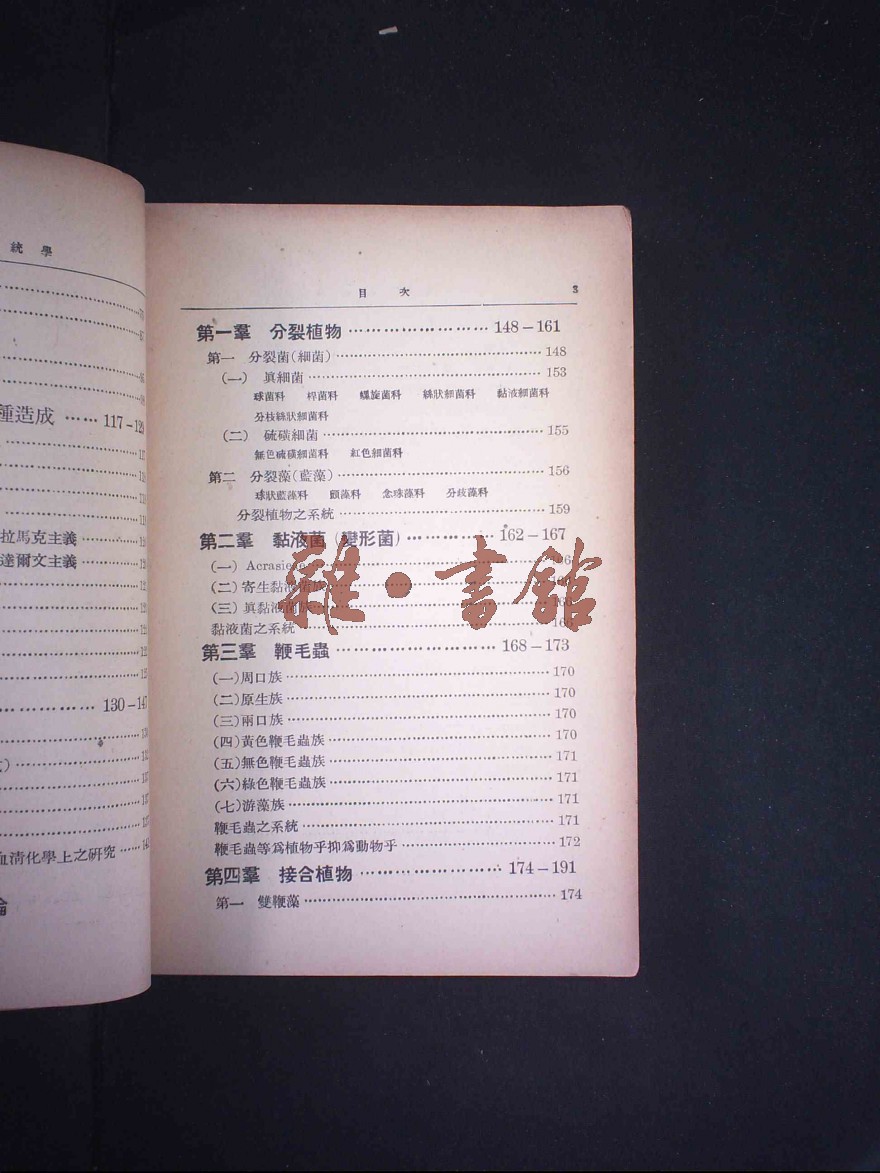 統學
種造成 …… 117-129
拉馬克主義
達爾文主義
130-147
血清化學上之研究
論
目 次 3
第一羣 分裂植物 …………………… 148-161
第一 分裂菌(細菌) …………………… 148
(一) 眞細菌 …………………… 153
球菌科 桿菌科 螺旋菌科 絲狀細菌科 黏液細菌科
分枝絲狀細菌科
(二) 硫磺細菌 …………………… 155
無色硫磺細菌科 紅色細菌科
第二 分裂藻(藍藻) …………………… 156
球狀藍藻科 顫藻科 念珠藻科 分歧藻科
分裂植物之系統 …………………… 159
第二羣 黏液菌(變形菌) …………… 162-167
(一) Acrasieae
(二)寄生黏液菌族
(三)眞黏液菌族
黏液菌之系統
雜·書館
第三羣 鞭毛蟲 …………………… 168-173
(一)周口族 …………………… 170
(二)原生族 …………………… 170
(三)兩口族 …………………… 170
(四)黃色鞭毛蟲族 …………………… 170
(五)無色鞭毛蟲族 …………………… 171
(六)綠色鞭毛蟲族 …………………… 171
(七)游藻族 …………………… 171
鞭毛蟲之系統 …………………… 171
鞭毛蟲等爲植物乎抑爲動物乎 …………………… 172
第四羣 接合植物 …………………… 174-191
第一 雙鞭藻 …………………… 174